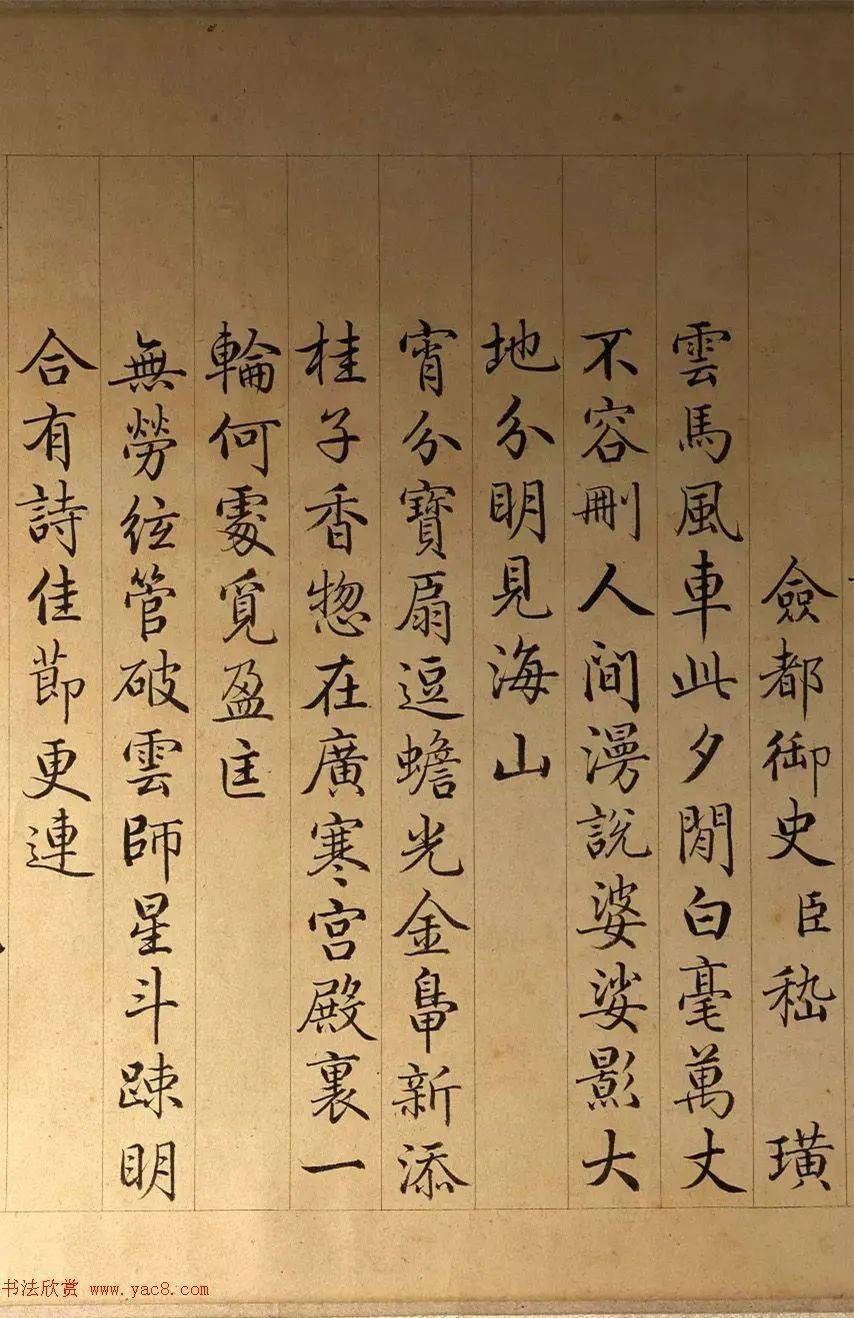 僉都御史臣嵇璜
雲馬風車此夕閒白毫萬丈
不容刪人間漫說婆娑影大
地分明見海山
宵分寶扇逗蟾光金鳧新添
桂子香惣在廣寒宮殿裏一
輪何處覓盈匡
無勞絃管破雲師星斗疎明
合有詩佳節更連
书法欣赏 www.yac8.com